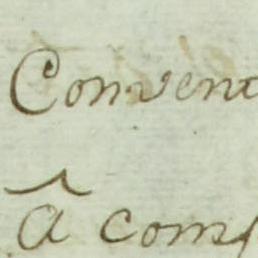 Convent
â com